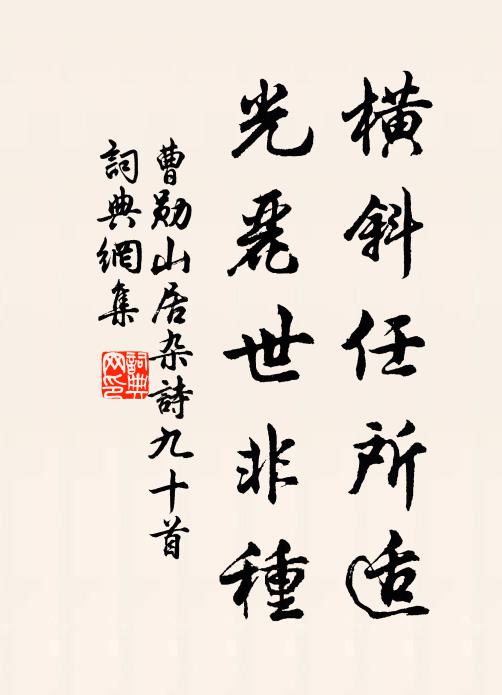 横斜任所适
光麗世非種
曹勋山居杂詩九十首
詞典網集
詞典
网印